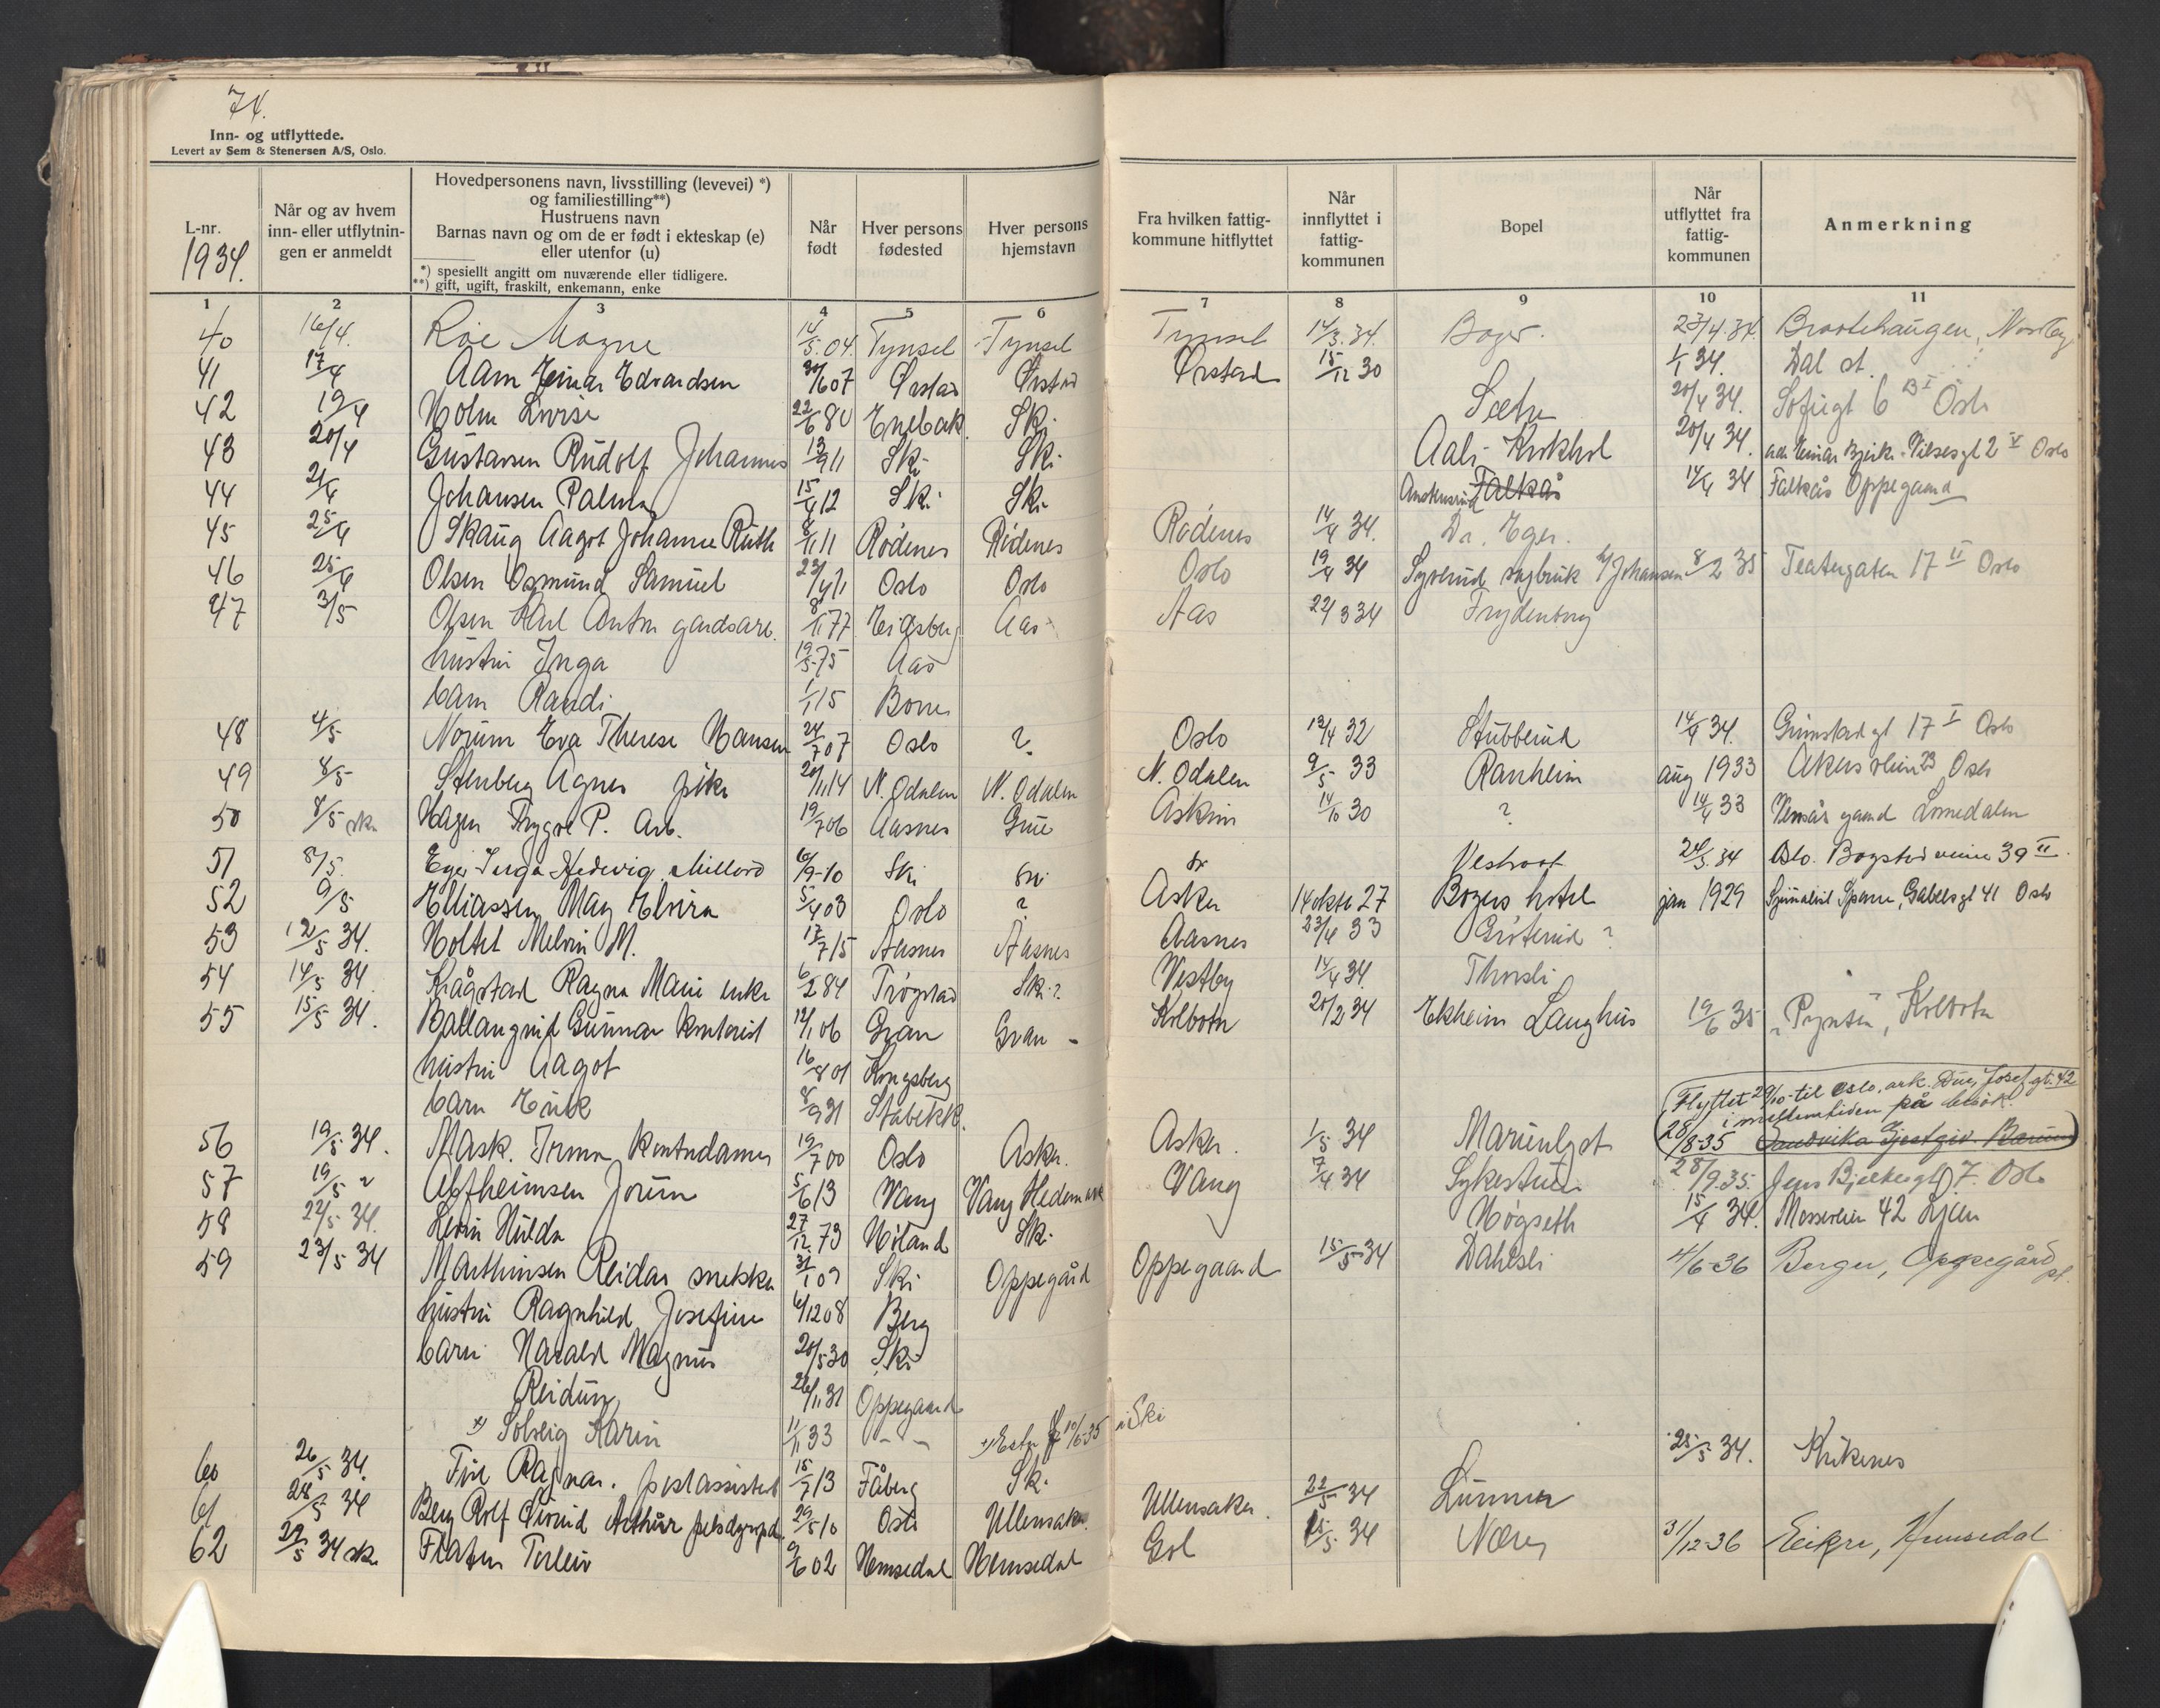 74.
Inn- og utflyttede.
Levert av Sem & Stenersen A/S, Oslo.
L-nr.
1934.
Når og av hvem
inn- eller utflytnin-
gen er anmeldt
Hovedpersonens navn, livsstilling (levevei) *)
og familiestilling**)
Hustruens navn
Barnas navn og om de er født i ekteskap (e)
eller utenfor (u)
*) spesiellt angitt om nuværende eller tidligere.
**) gift, ugift, fraskilt, enkemann, enke
Når
født
Hver persons
fødested
Hver persons
hjemstavn
Fra hvilken fattig-
kommune hitflyttet
Når
innflyttet i
fattig-
kommunen
Bopel
Når
utflyttet fra
fattig-
kommunen
Anmerkning
1 2 3 4 5 6 7 8 9 10 11
40 16/4. Roe Magne 14/5.04. Tynset Tynset Tynset 14/3.34. Boger. 23/4.34. Braatehaugen, Nordby
41 17/4 Aam Einar Edvardsen 30/6 07 Ørstad Ørstad Ørstad 15/12 30 1/1 34. Dal st.
42 19/4 Holm Lovise 22/6 80 Enebak Ski Sætre 20/4 34. Sofiegt 6 B I Oslo
43 20/4 Gustavsen Rudolf Johannes 13/9 11 Ski Ski Aals-Krokhol 20/4 34. Vilsesgt 2 IV Oslo
44 21/4 Johansen Palma 15/4 12 Ski Ski Falkås 14/4 34 Falkås Oppegaard
45 25/4 Skaug Aagot Johanne Ruth 8/11 11 Rødenes Rødenes Rødenes 14/4 34. Dr. Eger.
46 25/4 Olsen Osmund Samuel 23/4 11 Oslo Oslo Oslo 19/4 34 Syverud sagbruk h/ Johansen 8/2 35 Teatergaten 17 II Oslo
47 3/5 Olsen Karl Anton gaardsarb. 8/1 77 Eidsberg Aas Aas 22/3 34 Frydenberg
hustru Inga 19/5 75 Aas
barn Randi 1/1 15 Borre
48 4/5 Norum Eva Therese Hansen 24/7 07 Oslo ? Oslo 12/4 32 Stubberud 14/4 34. Grimstadgt 17 I Oslo
49 8/5 Stenberg Agnes pike 20/11 14 N. Odalen N. Odalen N. Odalen 9/5 33 Ranheim aug 1933 Akersveien 23 Oslo
50 8/5 skr Hagen Trygve P. Arb. 19/7 06 Aasnes Grue Askim 14/10 30 ? 14/4 33 gaard Lomedalen
51 8/5. Eger Inga Hedevig Millord 6/9-10 Ski Ski Vestvoot 24/3.34 Oslo. Bogstadveien 39 II.
52 9/5 Eliassen May Elvira 5/4 03 Oslo ? Asker 14 oktb 27 Bogers hotel jan 1929 Gabelsgt 41 Oslo
53 12/5 34. Holtet Melvin M. 17/7 15 Aasnes Aasnes Aasnes 23/4 33 Grøterud ?
54 14/5 34. Krågstad Ragna Marie enke 6/2 84 Trøgstad Ski ? Vestby 14/4 34. Thorsli
55 15/5 34. Ballangrud Gunnar kontorist 12/1 06 Gran Gran - Kolbotn 20/2 34 Ekheim Langhus 19/6 35 "Pynten", Kolbotn
hustru Aagot 16/8 01 Kongsberg
barn Erik 8/9 31 Stabekk.
Flyttet 29/10 til Oslo, ark. Due, Josef gt. 42
i mellemtiden på besøk.
56 19/5 34. Mask. Irma kontordame 19/7 00 Oslo Asker. Asker. 1/5 34 Marienlyst 28/8-35 Sandvika Gjestgiv. Bærum
57 19/5 " Alfheimsen Jorun 5/6 13 Vang Vang Hedemark Vang 7/4 34 Sykestuen 28/9.35. Jens Bjelkesgt 7. Oslo
58 22/5 34. Levin Hulda 27/12.73 Høland Ski Høgseth 15/4 34. Mosseveien 42 Ljan
59 23/5 34 Marthinsen Reidar snekker 31/1 09 Ski Oppegård Oppegaard 15/5 34 Dahlsli 4/6-36 Berger, Oppegård pl.
hustru Ragnhild Josefine 6/12 08 Berg
barn Harald Magnus 20/5 30 Ski
Reidun 26/11 31 Oppegaard
x) Solveig Karin 11/11 33 - - x) Ester f 10/6-35 i Ski
60 26/5 34. Ragnar. postassistent 15/7 13 Fåberg Ski 25/5 34. Kirkenes
61 28/5 34 Berg Rolf Eivind Arthur 29/5 10 Oslo Ullensaker. Ullensaker. 22/5 34 Lunner
62 29/5 34 skr Flaten Torleiv 9/6 02 Hemsedal Hemsedal Gol 15/5 34 Næren 31/12-36 Eikre, Hemsedal